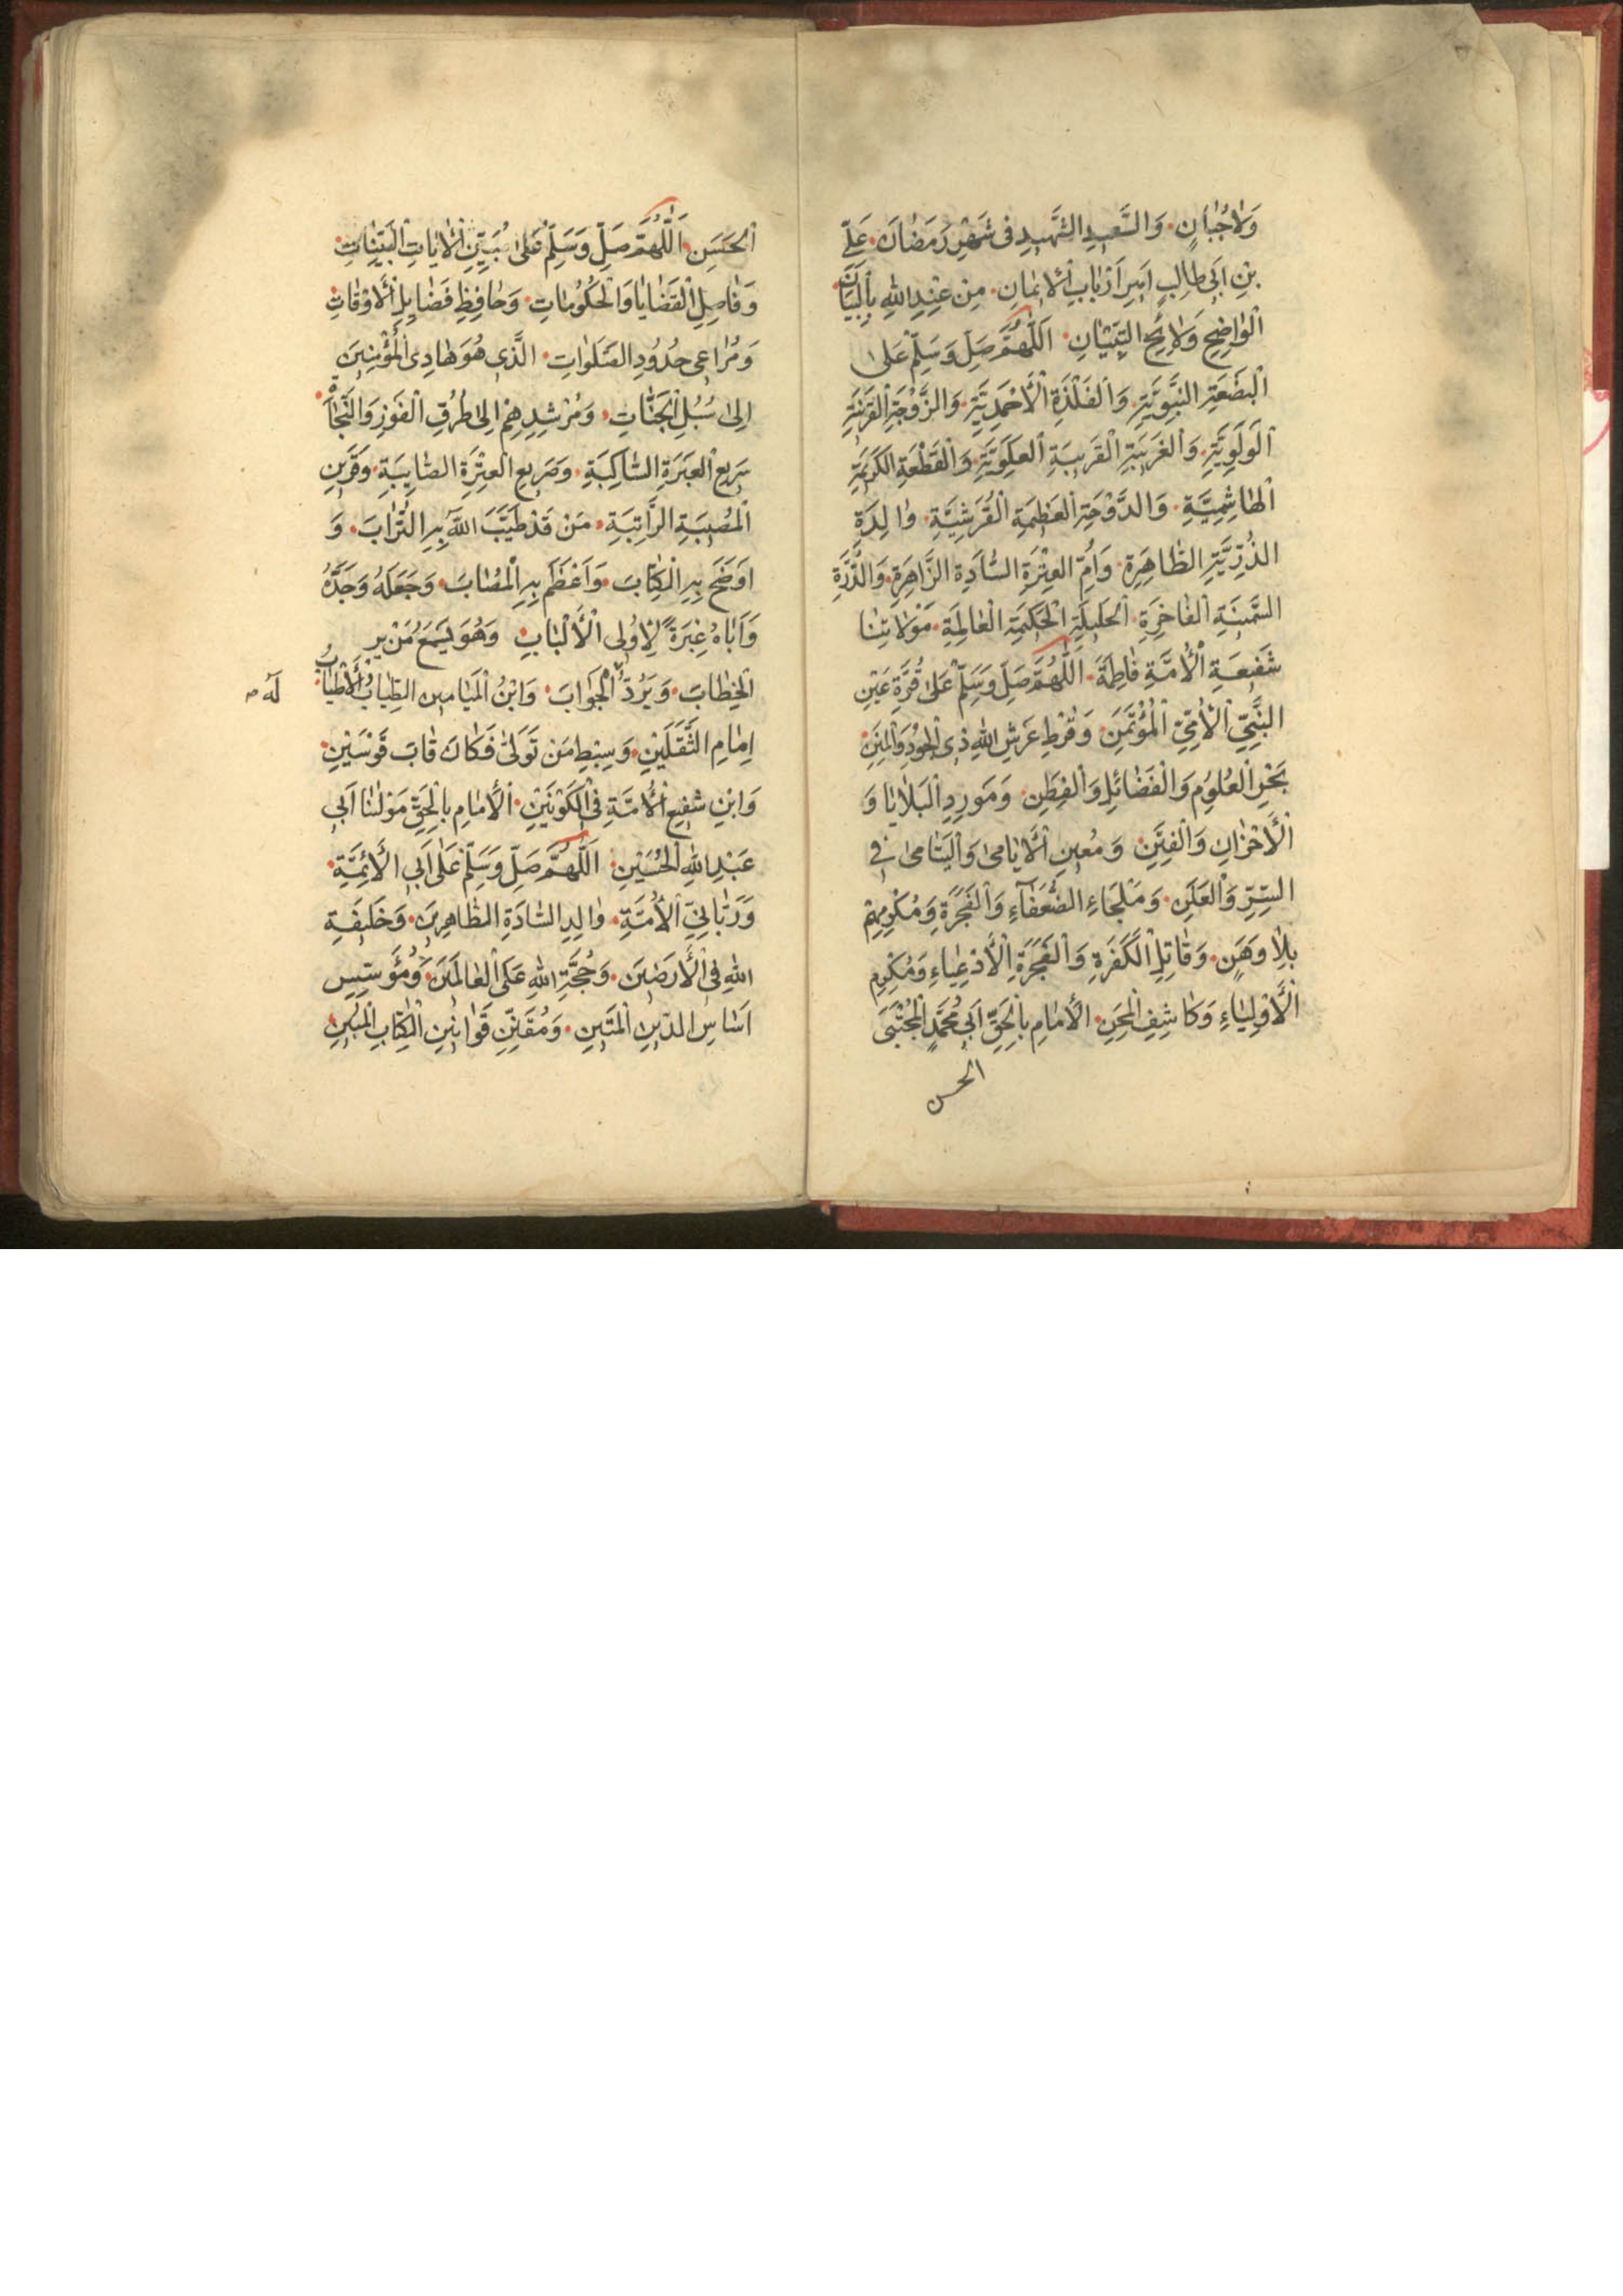 وَلاٰجُبٰانٍ وَالسَّعيدِ الشَّهيدِ فى شَهْرِ رَمَضٰانَ عَلِىِّ
بْنِ اَبى طالِبٍ اَميرِ اَرْبٰابِ الْاٖيمٰانِ مِنْ عِنْدِ اللهِ بِالْبَيٰانِ
الْوٰاضِحِ وَلاٰئِحِ التِّبْيٰانِ اَللّٰهُمَّ صَلِّ وَسَلِّمْ عَلىٰ
الْبَضْعَةِ النَّبَوِيَّةِ وَالْفَلْذَةِ الْاَحْمَدِيَّةِ وَالزَّوْجَةِ
وَالْقَريبَةِ الْعَلَوِيَّةِ وَالْقَطْعَةِ الْكَريمَةِ
الْهٰاشِمِيَّةِ وَالدَّوْحَةِ الْعَظيمَةِ الْقُرَشِيَّةِ وٰالِدَةِ
الذُّرِّيَّةِ الطّٰاهِرَةِ وَاُمِّ الْعِتْرَةِ السّٰادَةِ الزّٰاهِرَةِ وَالدُّرَّةِ
الثَّمينَةِ الْفٰاخِرَةِ الْجَليلَةِ الْحَكيمَةِ الْعٰالِمَةِ مَوْلاٰتِنٰا
شَفيعَةِ الْاُمَّةِ فٰاطِمَةَ اَللّٰهُمَّ صَلِّ وَسَلِّمْ عَلىٰ قُرَّةِ عَيْنِ
النَّبِىِّ الْاُمِّىِّ الْمُؤْتَمَنِ وَقُرْطِ عَرْشِ اللهِ ذِى الْجُودِ وَالْمِنَنِ
بَحْرِ الْعُلُومِ وَالْفَضٰائِلِ وَالْفِطَنِ وَمَوْرِدِ الْبَلاٰيٰا وَ
الْاَحْزٰانِ وَالْفِتَنِ وَمُعينِ الْاَيٰامىٰ وَالْيَتٰامىٰ فِى
السِّرِّ وَالْعَلَنِ وَمَلْجَاءِ الضُّعَفٰآءِ وَالْفَجَرَةِ وَمُكْرِمِهِمْ
بِلاٰ وَهَنٍ وَقٰاتِلِ الْكَفَرَةِ وَالْفَجَرَةِ الْاَدْعِيٰاءِ وَمُكْرِمِ
الْاَوْلِيٰاءِ وَكٰاشِفِ الْمِحَنِ الْاِمٰامِ بِالْحَقِّ اَبى مُحَمَّدٍ الْمُجْتَبىٰ
الحسن
الْحَسَنِ اَللّٰهُمَّ صَلِّ وَسَلِّمْ عَلىٰ مُبَيِّنِ الْاٰيٰاتِ الْبَيِّنٰاتِ
وَفٰاصِلِ الْقَضٰايٰا وَالْحُكُومٰاتِ وَحٰافِظِ فَضٰايِلِ الْاَوْقٰاتِ
وَمُرٰاعى حُدُودِ الصَّلَوٰاتِ الَّذى هُوَ هٰادِى الْمُؤْمِنينَ
اِلىٰ سُبُلِ الْجَنّٰاتِ وَمُرْشِدِهِمْ اِلىٰ طُرُقِ الْفَوْزِ وَالنَّجٰاةِ
سَريعِ الْعَبَرَةِ السّٰاكِبَةِ وَصَريعِ الْعِتْرَةِ الصّٰايِبَةِ وَقَرينِ
الْمُصيبَةِ الرّٰاتِبَةِ مَنْ قَدْ طَيَّبَ اللّٰهُ بِهِ التُّرٰابَ وَ
اَوْضَحَ بِهِ الْكِتٰابَ وَاَعْظَمَ بِهِ الْمُصٰابَ وَجَعَلَهُ وَجَدَّهُ
وَاَبٰاهُ عِبْرَةً لِاُولِى الْاَلْبٰابِ وَهُوَ يَسْمَعُ مَنْ يَر
الْخِطٰابَ وَيَرُدُّ الْجَوٰابَ وَابْنُ الْمَيٰامينِ الطِّيٰابُ الْاَطْيٰابُ
لَهُ
اِمٰامِ الثَّقَلَيْنِ وَسِبْطِ مَنْ تَوَلّىٰ فَكٰانَ قٰابَ قَوْسَيْنِ
وَابْنِ شَفيعِ الْاُمَّةِ فِى الْكَوْنَيْنِ الْاِمٰامِ بِالْحَقِّ مَوْلٰنٰا اَبى
عَبْدِ اللهِ الْحُسَيْنِ اَللّٰهُمَّ صَلِّ وَسَلِّمْ عَلىٰ اَبِى الْاَئِمَّةِ
وَرَبّٰانِىِّ الْاُمَّةِ وٰالِدِ السّٰادَةِ الطّٰاهِرينَ وَخَليفَةِ
اللهِ فِى الْاَرَضينَ وَحُجَّةِ اللهِ عَلَى الْعٰالَمينَ وَمُؤَسِّسِ
اَسٰاسِ الدّينِ الْمَتينِ وَمُقَنِّنِ قَوٰانينِ الْكِتٰابِ الْمُبينِ